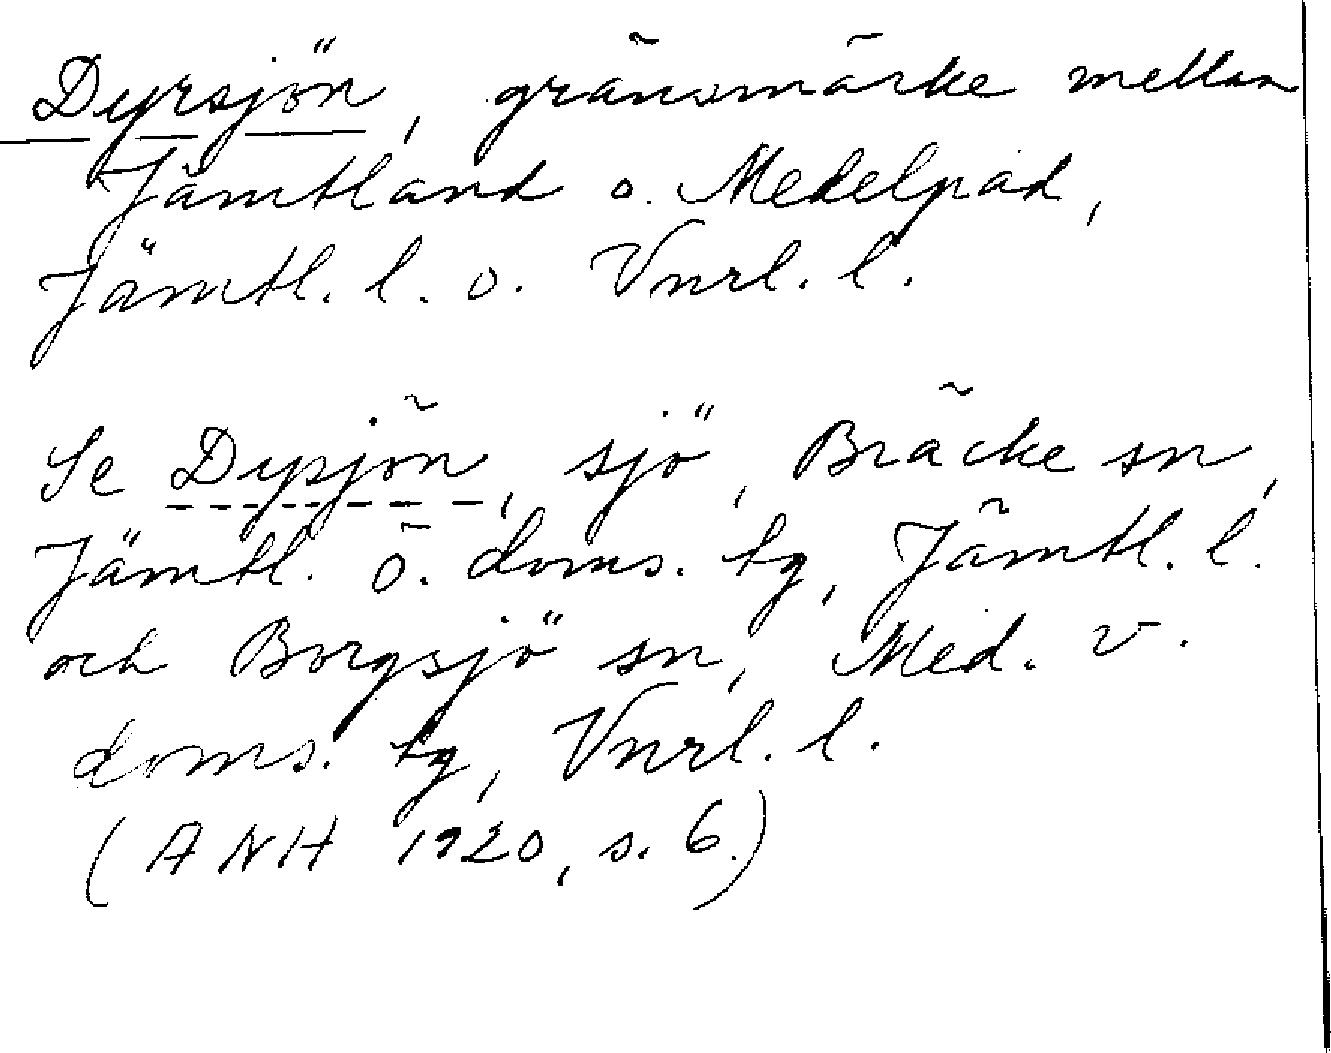 Dyrsjön, gränsmärke mellan
Jämtland o. Medelpad,
Jämtl. l. o. Vnrl. l.
Se Dysjön, sjö, Bräcke sn,
Jämtl. ö. doms. tg, Jämtl. l.
och Borgsjö sn, Med. v.
doms. tg, Vnrl. l.
(ANH 1920, s. 6.)